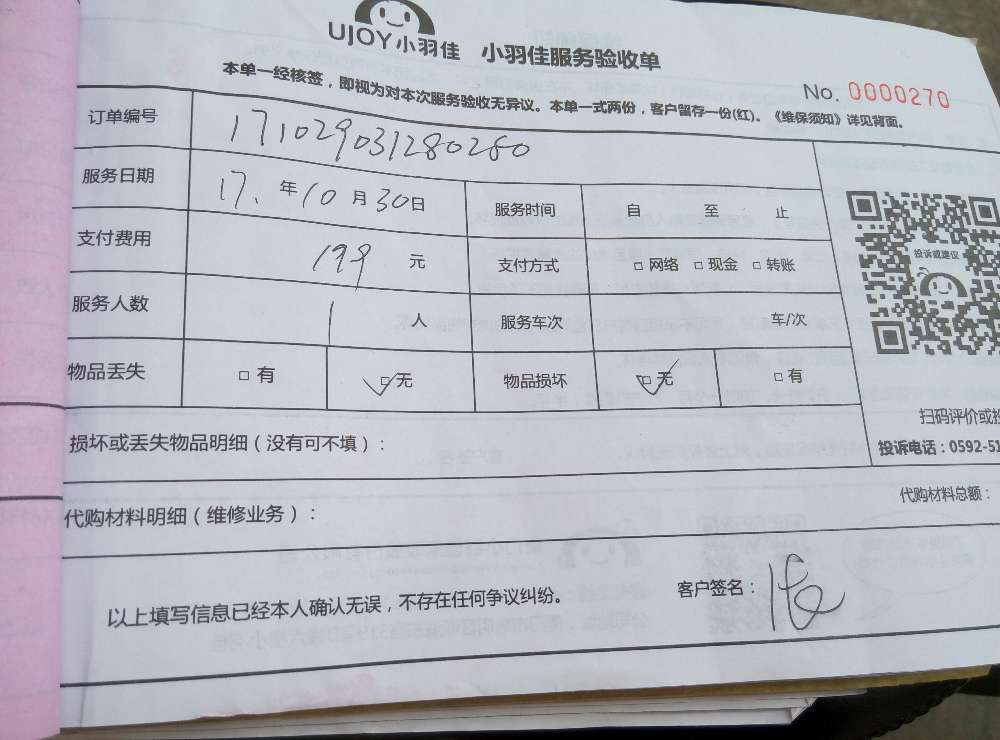 UJOY小羽佳 小羽佳服务验收单
No. 0000270
本单一经核签，即视为对本次服务验收无异议。本单一式两份，客户留存一份(红)。《维保须知》详见背面。
订单编号 171029031280280
服务日期 17. 年 10 月 30 日 服务时间 自 至 止
支付费用 199 元 支付方式 □ 网络 □ 现金 □ 转账
服务人数 1 人 服务车次 车/次
物品丢失 □ 有 ☑ 无 物品损坏 ☑ 无 □ 有
投诉或建议
扫码评价或投
投诉电话：0592-51
损坏或丢失物品明细（没有可不填）：
代购材料明细（维修业务）：
代购材料总额：
以上填写信息已经本人确认无误，不存在任何争议纠纷。
客户签名：